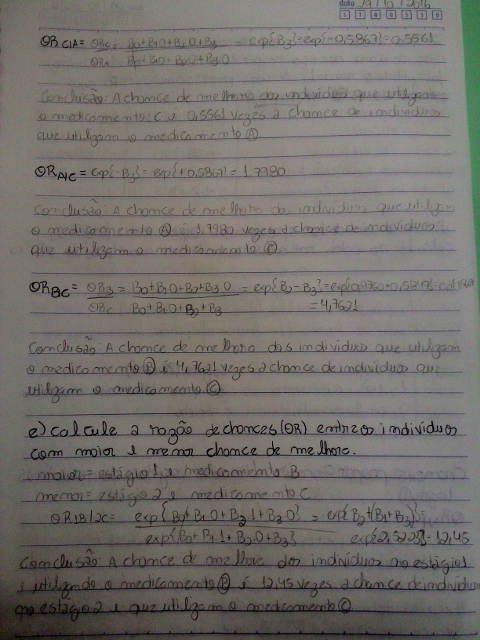 data 19/10/2016
S T Q Q S S D
OR C/A = OR C = B0+B1.0+B2.0+B3 = exp{B3} = exp{-0,5867} = 0,5561
OR A B0+B1.0+B2.0+B3.0
Conclusão: A chance de melhora dos individuos que utilizam
o medicamento C é 0,5561 vezes a chance de individuos
que utilizam o medicamento A
OR A/C = exp{-B3} = exp{+0,5867} = 1,7980
Conclusão: A chance de melhora dos individuos que utilizam
o medicamento A é 1,7980 vezes a chance de individuos
que utilizam o medicamento C.
OR BC = OR B = B0+B1.0+B2+B3.0 = exp{B2-B3} = exp
OR C B0+B1.0+B2+B3 = 4,7621
Conclusão: A chance de melhora dos individuos que utilizam
o medicamento B é 4,7621 vezes a chance de individuos que
utilizam o medicamento C
e) Calcule a razão de chances (OR) entre os individuos
com maior e menor chance de melhora.
maior = estágio 1 e medicamento B
menor = estágio 2 e medicamento C
OR 1B/2C = exp{B0+B1.0+B2.1+B3.0} = exp{B2-(B1+B3)}
exp{B0+B1.1+B2.0+B3} exp{2,5228} = 12,45
Conclusão: A chance de melhora dos individuos no estágio 1
e utilizando o medicamento B é 12,45 vezes a chance de individuos
no estágio 2 e que utilizam o medicamento C